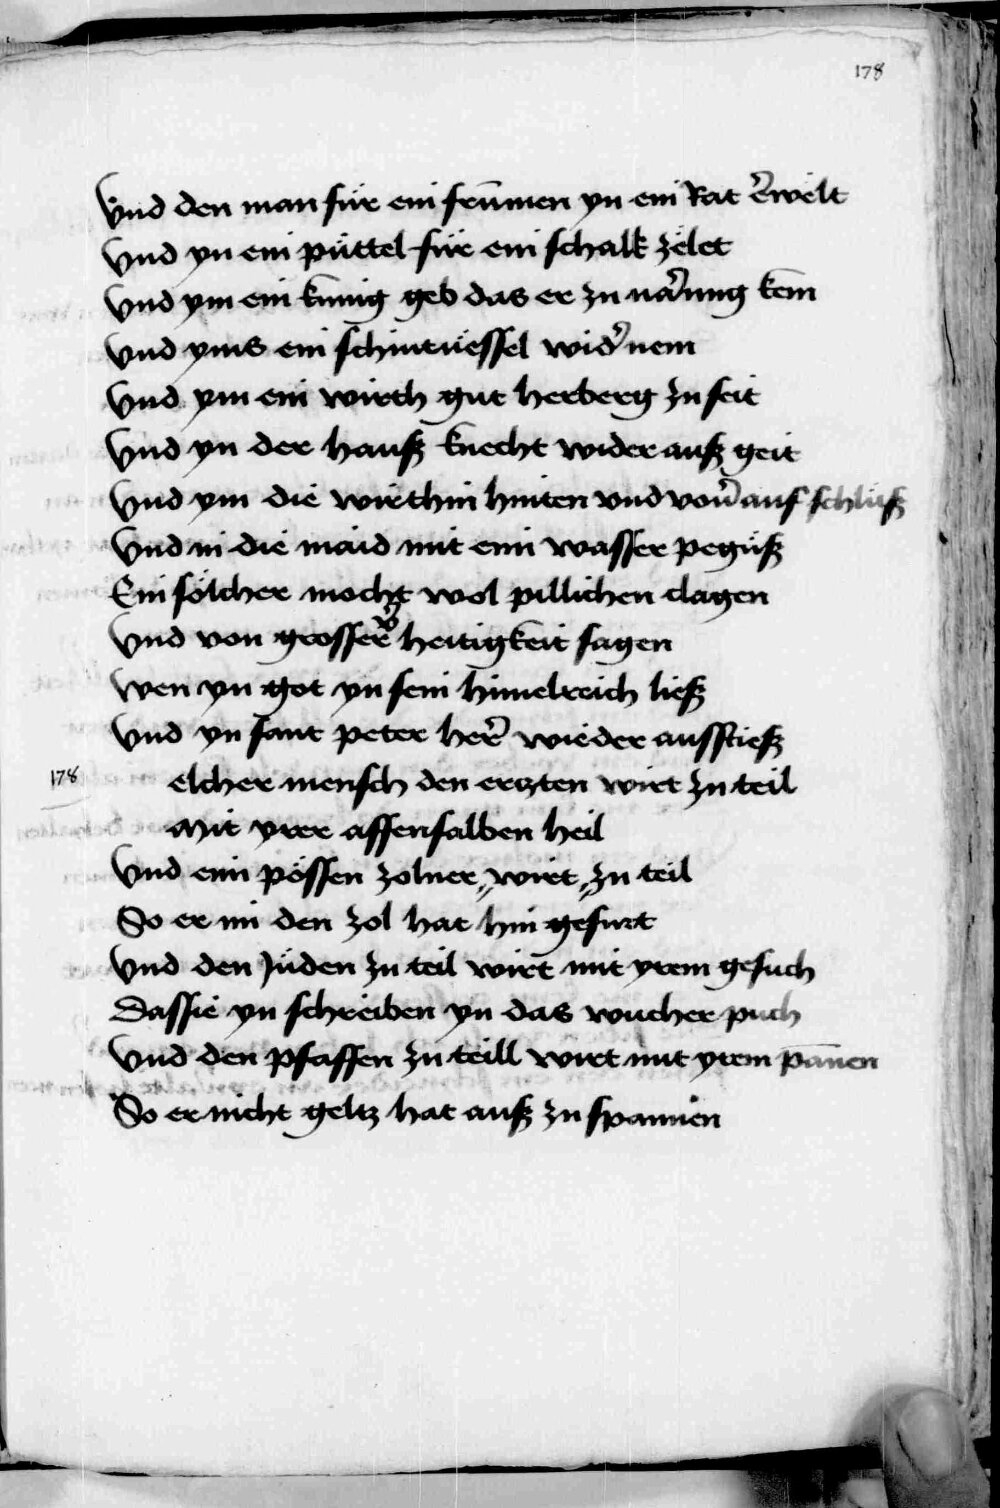 178
Vnd den man für ein frūmen yn ein Rat erwelt
Vnd yn ein püttel für ein schalk zelet
Vnd ym ein künig geb das er zu narung kem
Vnd yms ein schintüessel wider nem
Vnd ym ein wirth gut herberg zu seit
Vnd yn der haußknecht wider auß geit
Vnd ym die wirthin hinten vnd vorn auf schließ
Vnd in die maid mit eim wasser peguß
Ein sölcher mocht wol pillichen clagen
Vnd von grosser heitigkeit sagen
Wen yn got yn sein himelreich ließ
Vnd yn sant peter her wieder ausstieß
178 elcher mensch den erczten wirt zu teil
Mit yrer affensalben heil
Vnd eim pössen zolner wirt zu teil
So er im den zol hat hin gefurt
Vnd den Jüden zu teil wirt mit yrem gesuch
Das sie yn schreiben yn das wucher puch
Vnd den pfaffen zu teill wirt mit yrem pānen
So er nicht geltz hat auß zu spannen